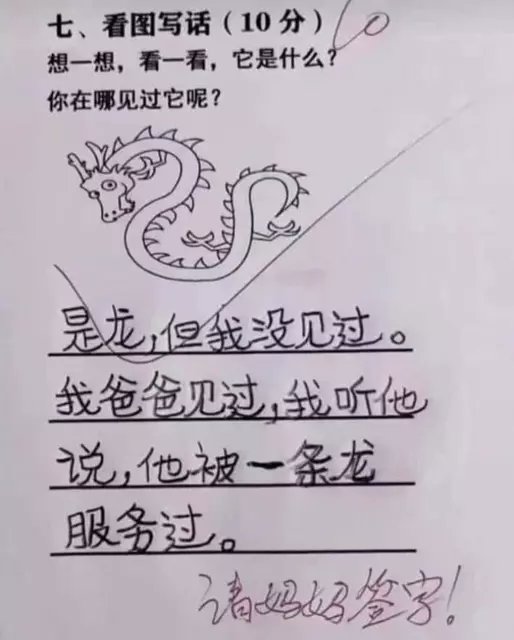 七、看图写话（10分）10
想一想，看一看，它是什么？
你在哪见过它呢？
是龙，但我没见过。
我爸爸见过，我听他
说，他被一条龙
服务过。
请妈妈签字！